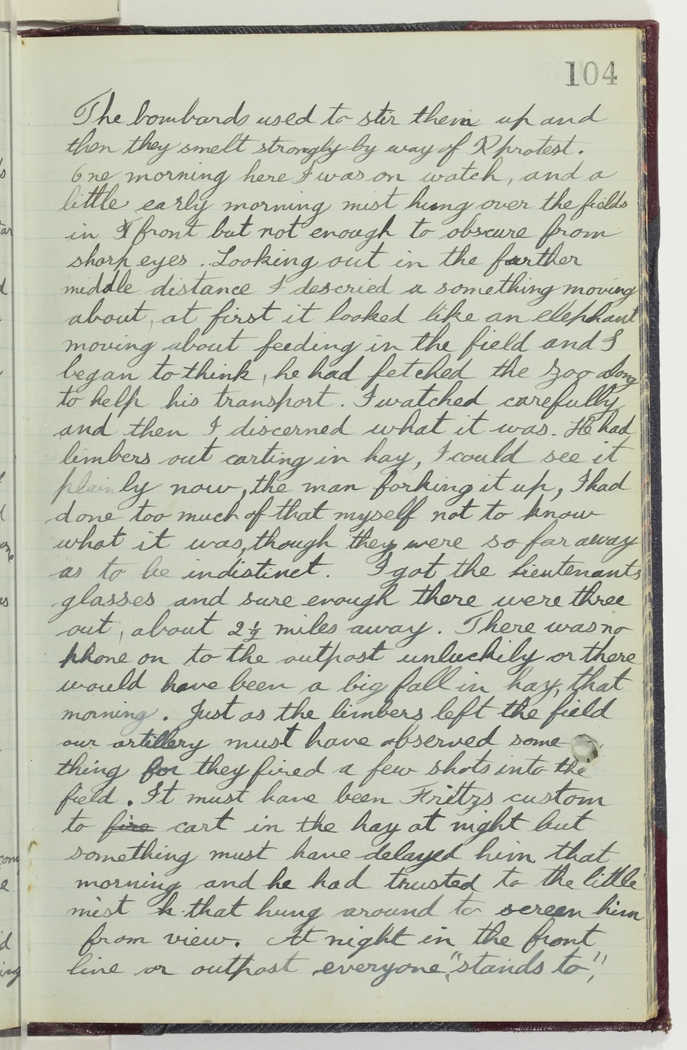 104
The bombards used to stir them up and
then they smelt strongly by way of protest.
One morning here I was on watch, and a
little early morning mist hung over the fields
in front but not enough to obscure from
sharp eyes. Looking out in the farther
middle distance I descried a something moving
about, at first it looked like an elephant
moving about feeding in the field and I
began to think, he had fetched the zoo along
to help his transport. I watched carefully
and then I discerned what it was. He had
limbers out carting in hay, I could see it
plainly now, the man forking it up, I had
done too much of that myself not to know
what it was, though they were so far away
as to be indistinct. I got the lieutenants
glasses and sure enough there were three
out, about 2½ miles away. There was no
phone on to the outpost unluckily or there
would have been a big fall in hay, that
morning. Just as the limbers left the field
our artillery must have observed some
thing for they fired a few shots into the
field. It must have been Frittzs custom
to fire cart in the hay at night but
something must have delayed him that
morning and he had trusted to the little
mist that hung around to screen him
from view. At night in the front
line or outpost everyone, "stands to",